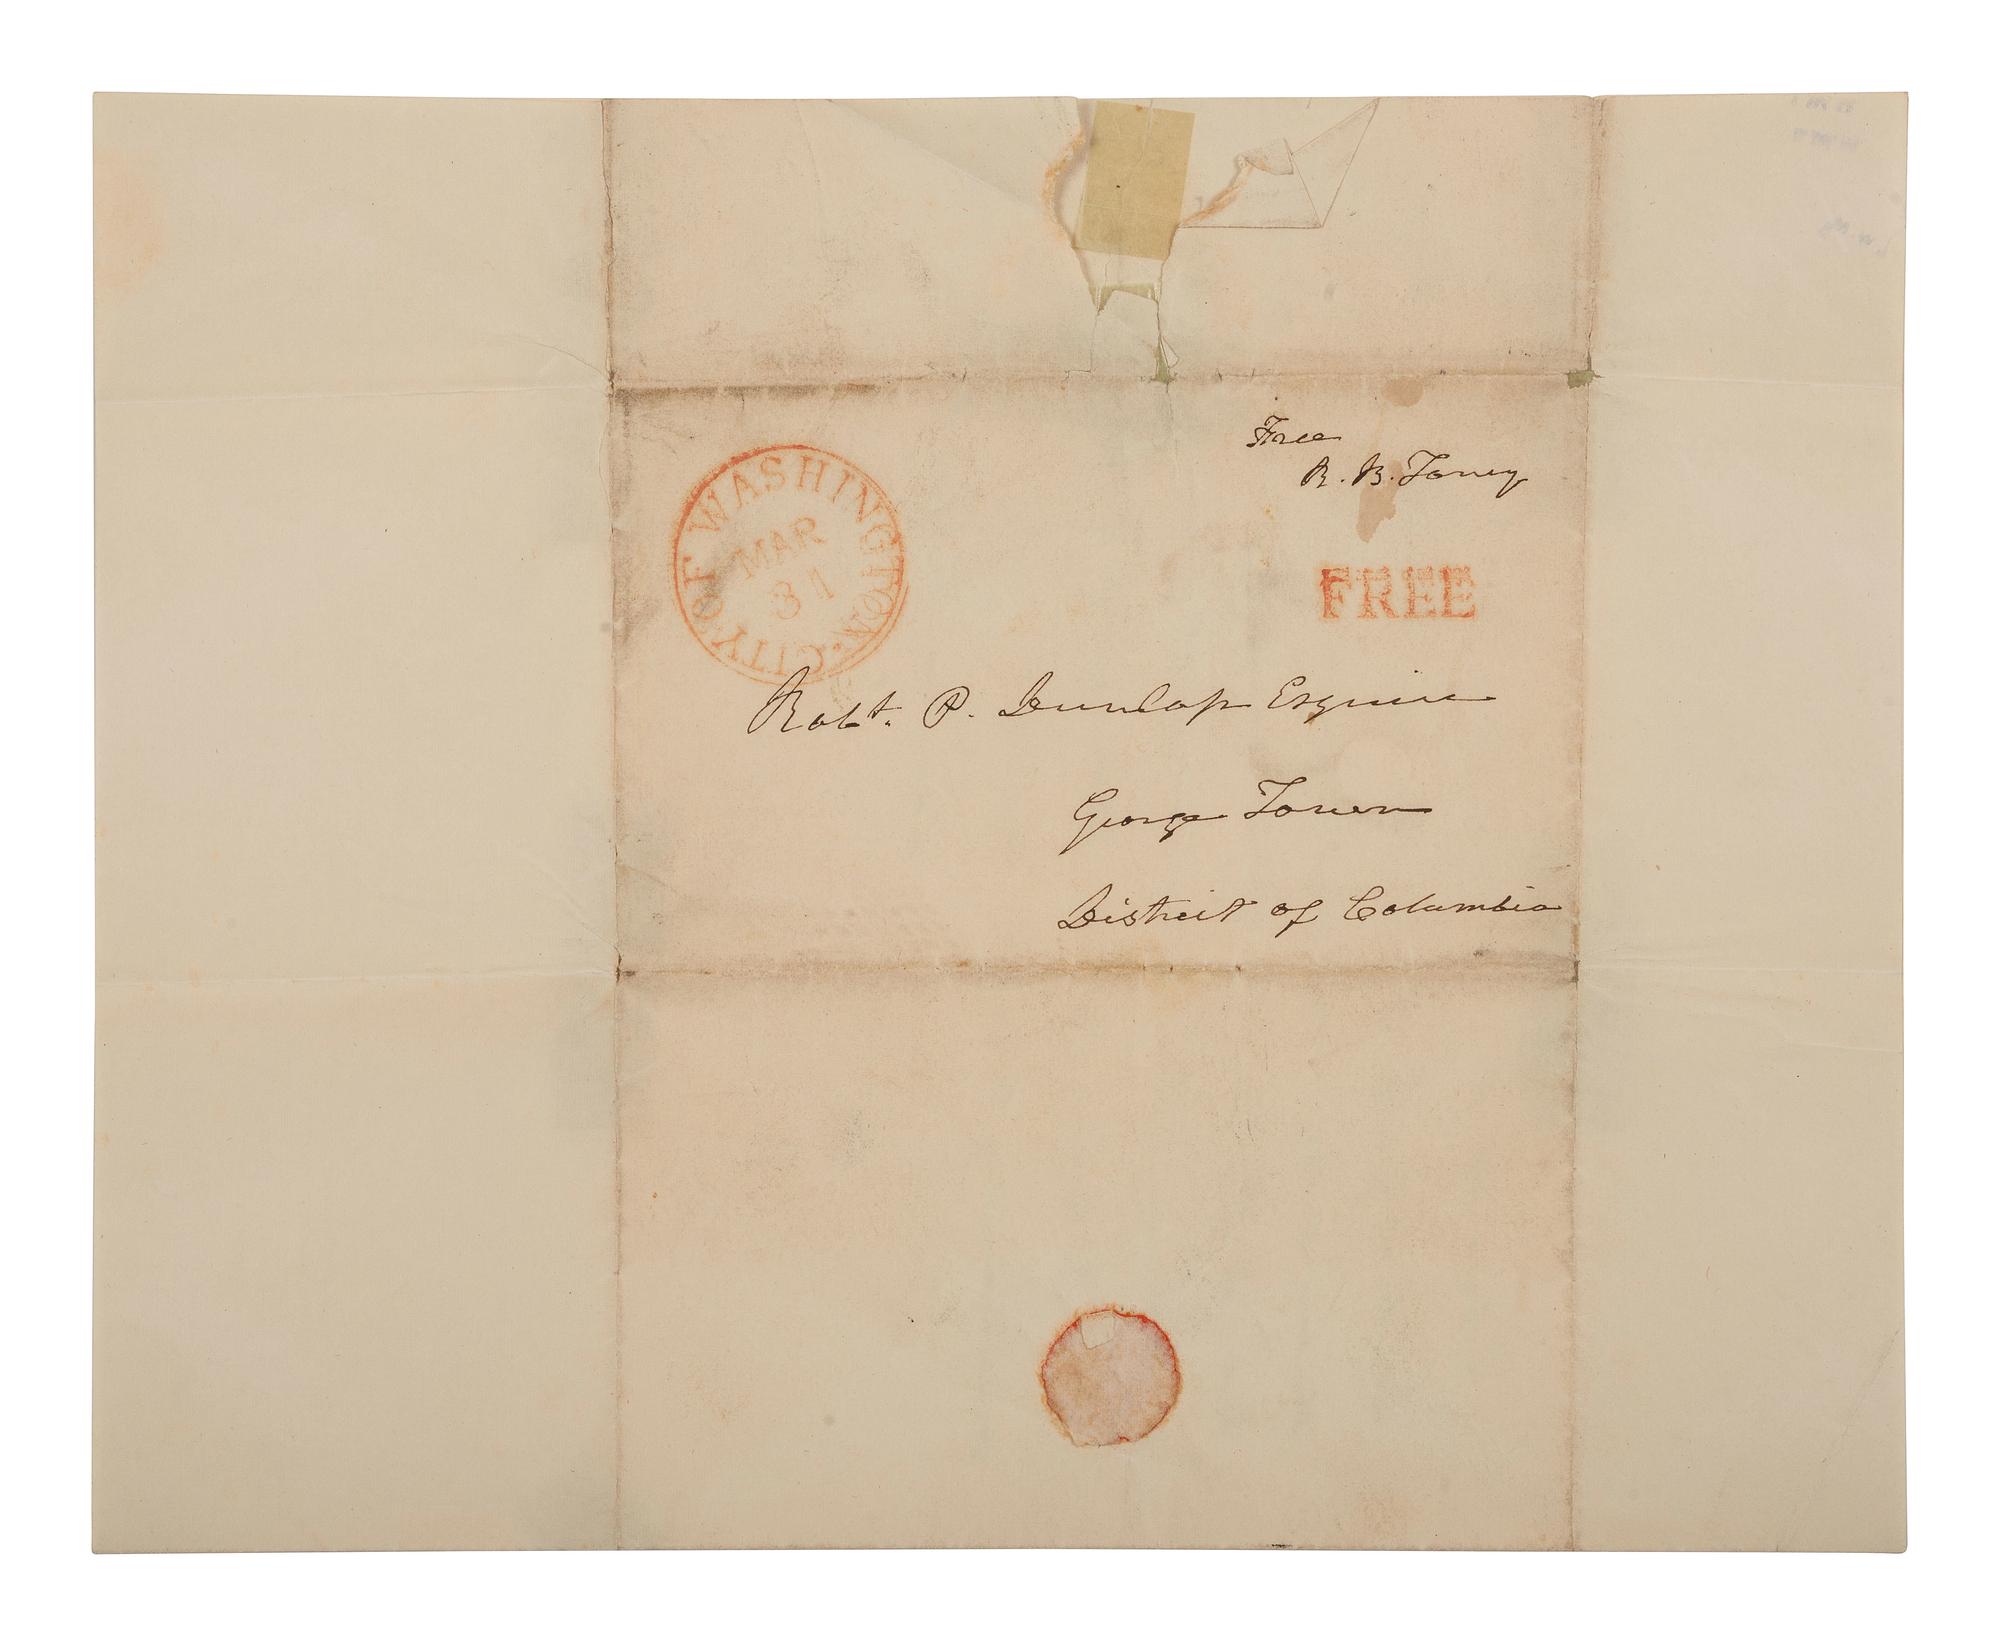 Free
R. B. Taney
CITY OF WASHINGTON
MAR
31
FREE
Robt. P. Dunlap Esquire
George Town
District of Columbia